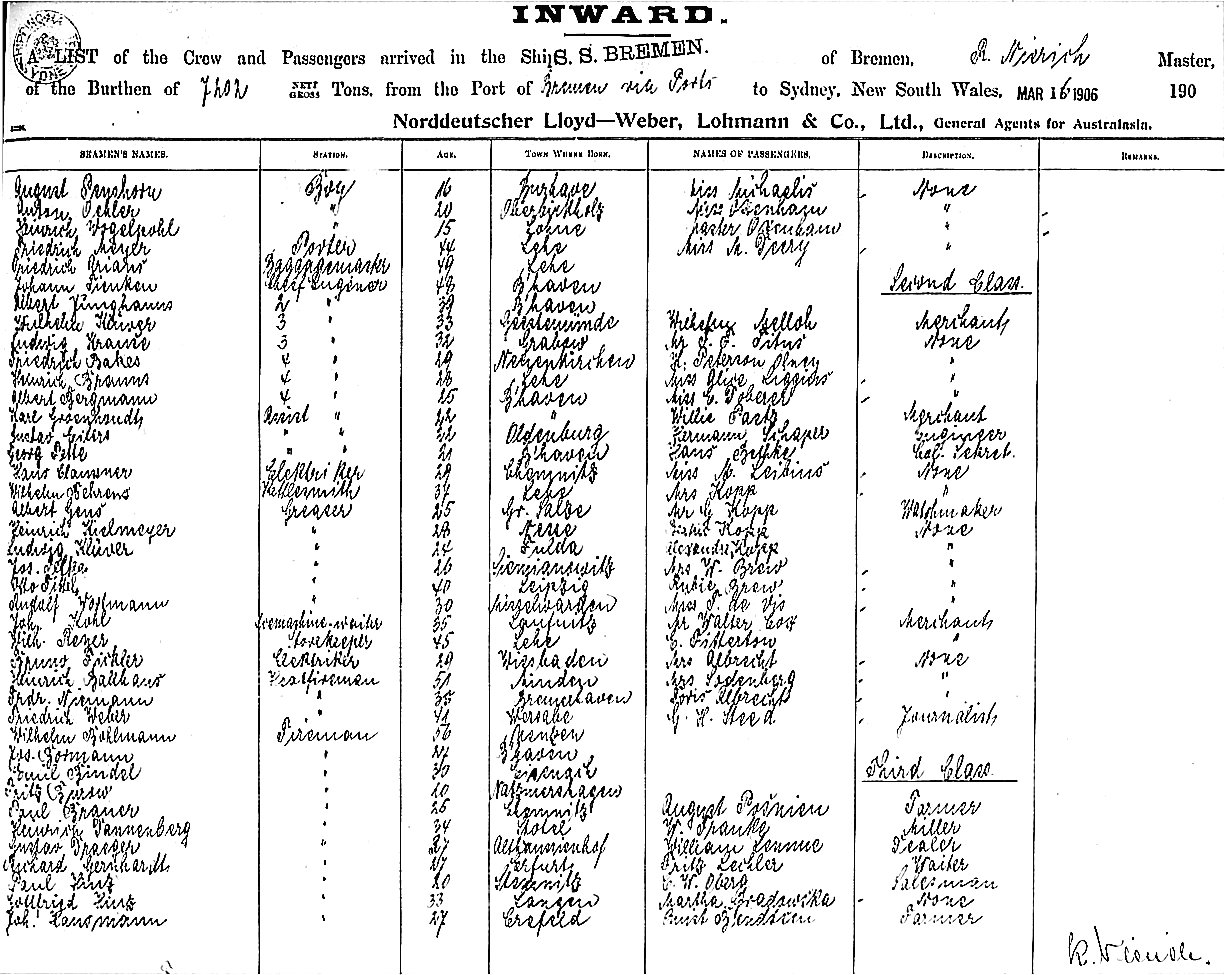 INWARD.
A LIST of the Crew and Passengers arrived in the Ship S. S. BREMEN. of Bremen, R. Nierich Master,
of the Burthen of 7202 NETT GROSS Tons, from the Port of Bremen via Ports to Sydney, New South Wales, MAR 16 1906 190
Norddeutscher Lloyd—Weber, Lohmann & Co., Ltd., General Agents for Australasia.
SEAMEN'S NAMES. STATION. AGE. TOWN WHERE BORN. NAMES OF PASSENGERS. DESCRIPTION. REMARKS.
August Penshorn Boy 16 Burhave Miss Michaelis None
Anton Oehler " 20 Miss Ozenham "
Heinrich Vogelpohl " 15 Lohne Master Ozenham "
Friedrich Meyer Porter 44 Lehe Miss M. Terry "
Friedrich Baggagemaster 49 Lehe
Johann Tienken Chief Engineer 48 B'haven Second Class.
Albert Junghanns 2 " 39 B'haven
Wilhelm Klüver 3 " 33 Geestemünde Wilhelm Melloh Merchant
Ludwig Krause 3 " 32 Grabow Mr Titus None
Friedrich Bakes 4 " 29 Neuenkirchen H. Peterson Olney "
Heinrich Brauns 4 " 28 Lehe Miss Alice Liggins "
Albert Bergmann 4 " 25 B'haven Miss C. Toberer "
Karl Groenhoudt Assist " 22 " Willie Paetz Merchant
Gustav Eilers " " 22 Oldenburg Hermann Schaper Engineer
Georg " " 21 B'haven Hans Bethke Col. Sekret.
Hans Claussner Elektriker 29 Chemnitz Miss M. Leibius None
Wilhelm Behrens Kettlesmith 37 Lehe Mrs Kopp "
Albert Gens Greaser 25 Gr. Salze Mr G Kopp Watchmaker
Heinrich Kielmeyer " 28 Kopp None
Ludwig Klüver " 24 Fulda Alexandra Kopp "
Jos. " 26 Siemianowitz Mrs W. Brew "
Otto " 40 Leipzig Rubie Brew "
Rudolf Wortmann " 30 Miss de Vis "
Joh. Kohl Icemachine-waiter 35 Mr Walter Cox Merchant
Wilh. Reyer Storekeeper 45 Lehe C. Pitterton "
Bruno Pichler Elektriker 29 Wiesbaden Mrs Albrecht None
Heinrich Balthaus Headfireman 51 Minden Mrs Sodenberg "
Frdr. Niemann " 35 Bremerhaven Doris Albrecht "
Friedrich Weber " 41 Wersabe G. H. Steed Journalist
Wilhelm Bohlmann Fireman 36
Jos. Bormann " B'haven
Emil Bindel " 30 Third Class.
Fritz " 20 Natzmershagen
Paul Brauer " 25 Chemnitz August Farmer
Heinrich Tannenberg " 34 Stotel W. Franke Miller
Gustav Traeger " 27 Althammenhof William Lemme Dealer
Richard Gernhardt " 27 Erfurt Fritz Lechler Waiter
Paul " 20 C. W. Oberg Salesman
Gottfried " 33 Langen Martha Gradowska None
Joh. Hansmann " 27 Crefeld Farmer
R. Nierich.